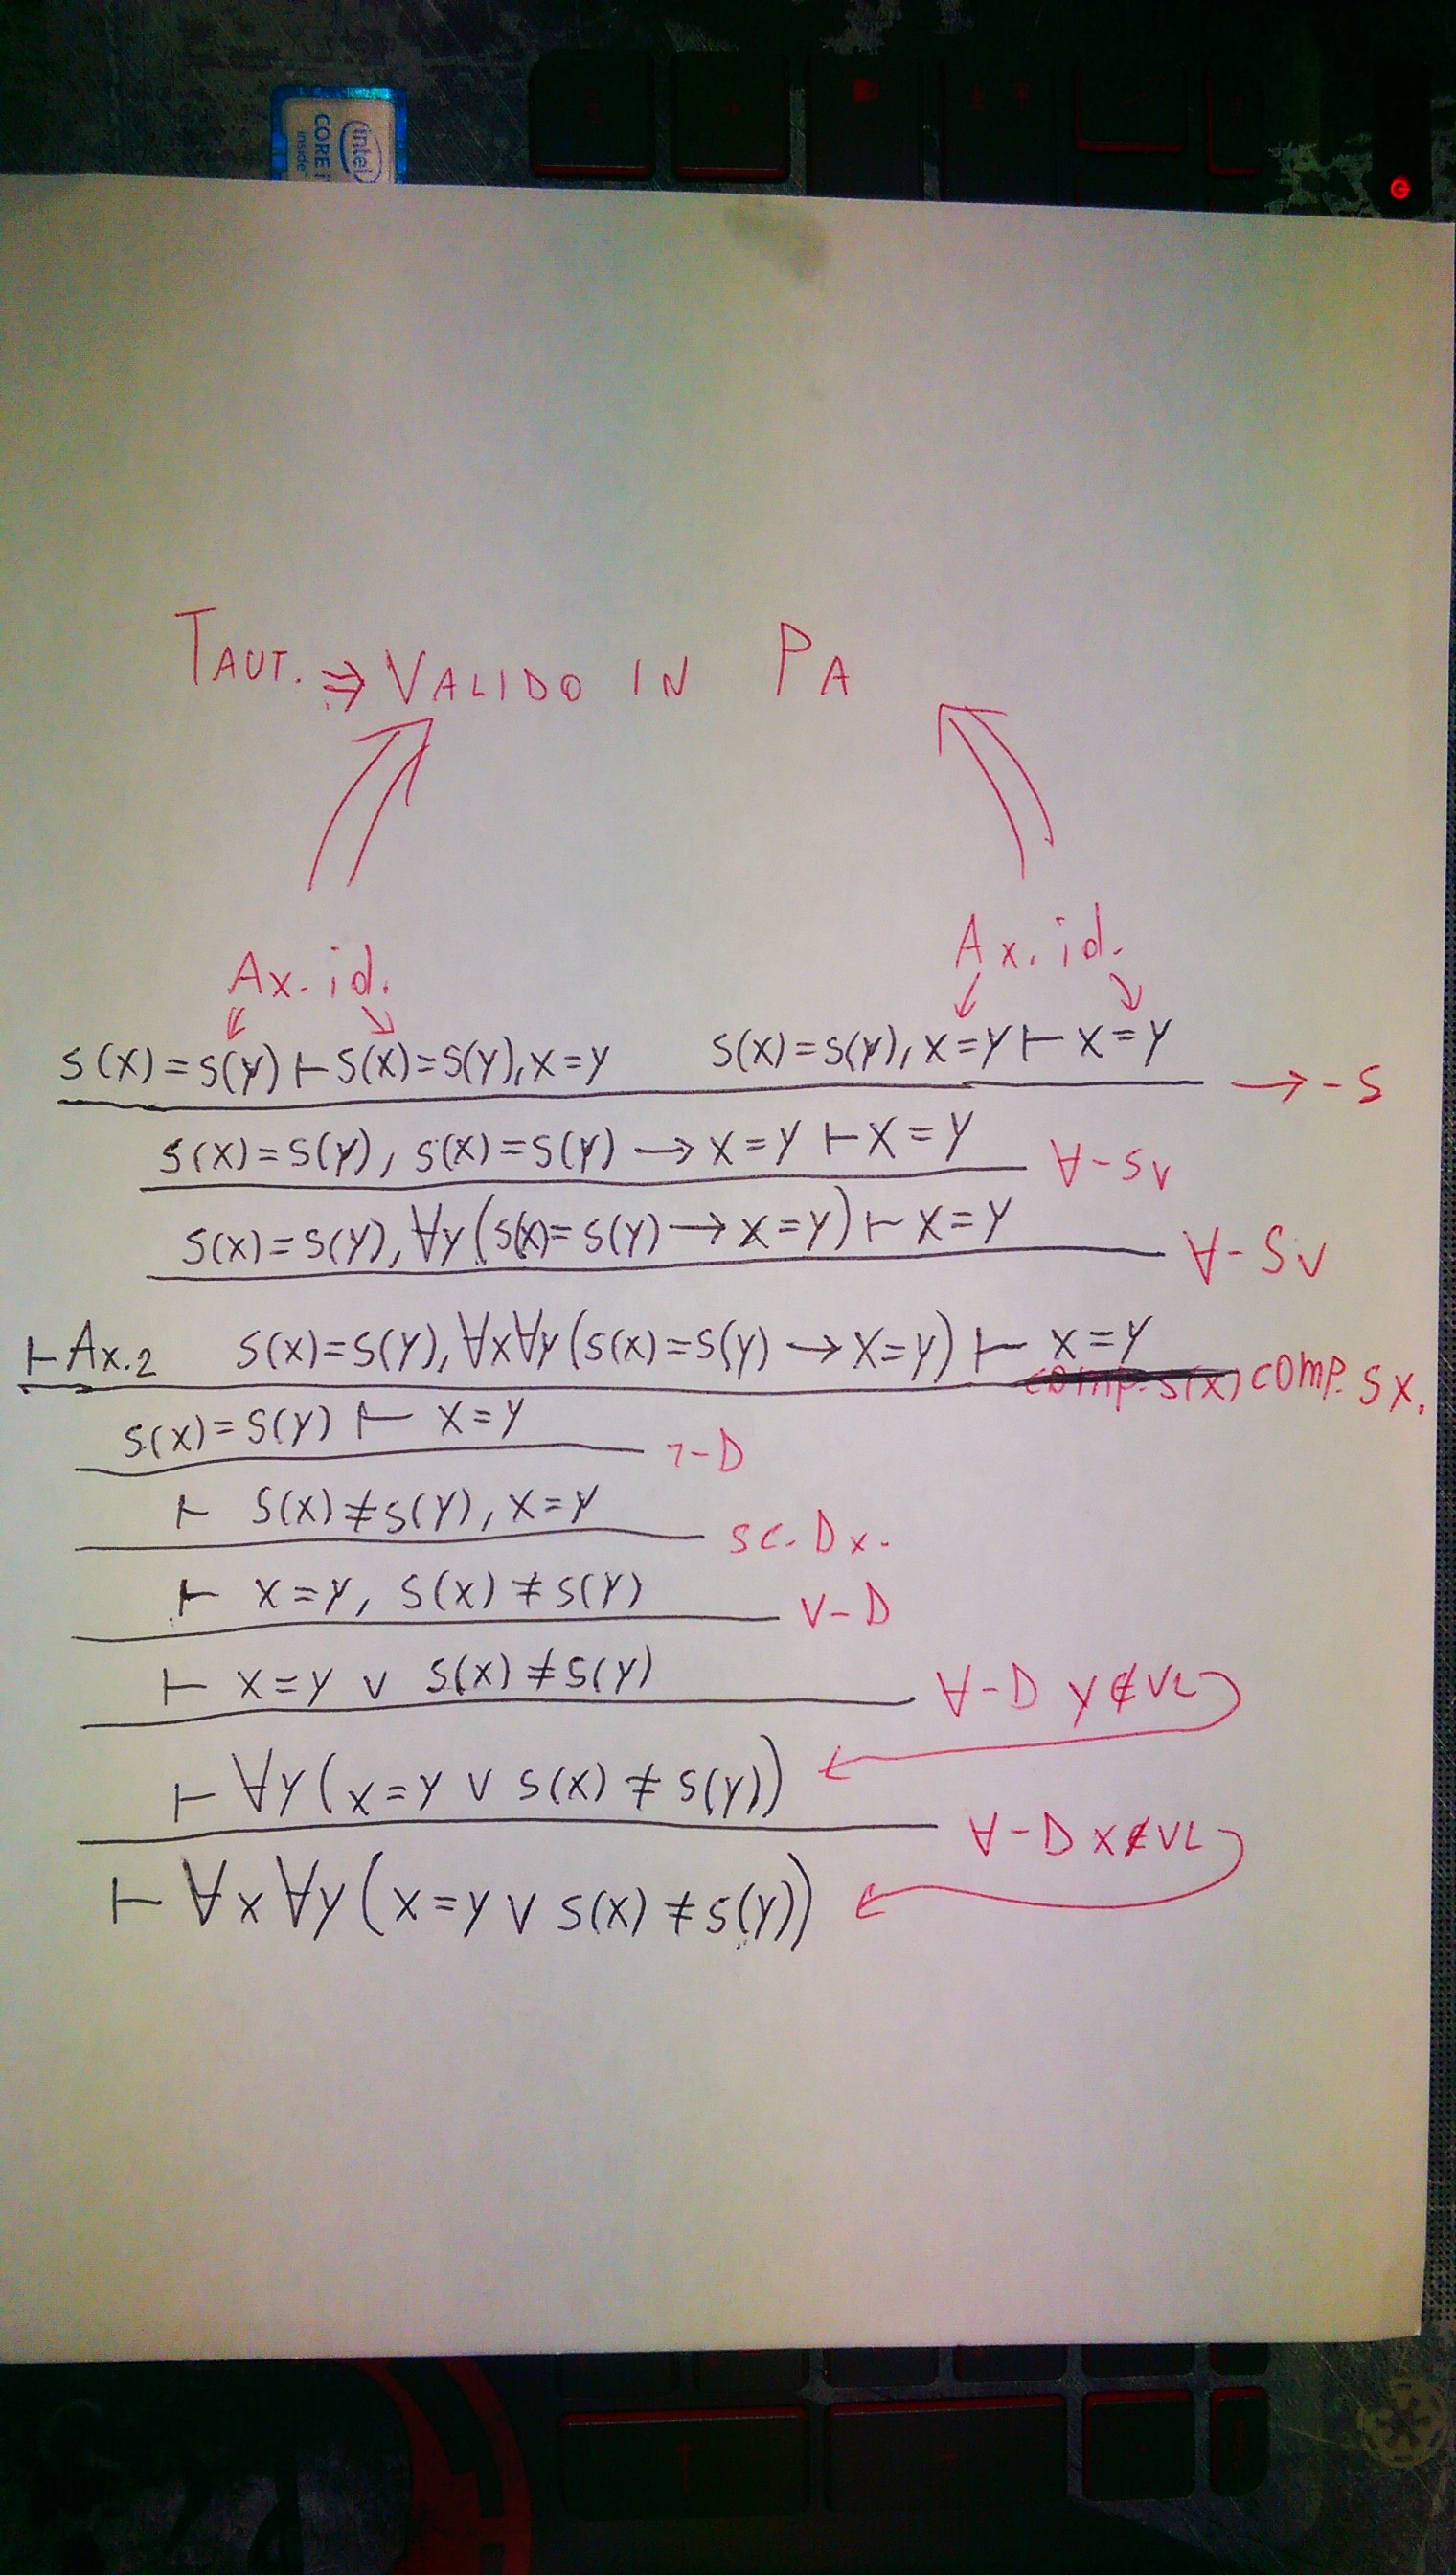 intel
CORE i
inside
TAUT. ⇒ VALIDO IN PA
Ax. id. Ax. id.
S(X)=S(Y)⊢S(X)=S(Y),X=Y S(X)=S(Y),X=Y⊢X=Y →-S
S(X)=S(Y), S(X)=S(Y)→X=Y⊢X=Y ∀-Sv
S(X)=S(Y),∀y(S(X)=S(Y)→X=Y)⊢X=Y ∀-Sv
⊢Ax.2 S(X)=S(Y),∀x∀y(S(X)=S(Y)→X=Y)⊢X=Y
comp. S(X) comp. SX.
S(X)=S(Y)⊢X=Y ¬-D
⊢ S(X)≠S(Y), X=Y sc. Dx.
⊢ X=Y, S(X)≠S(Y) ∨-D
⊢ X=Y ∨ S(X)≠S(Y) ∀-D y∉VL
⊢∀y(X=Y ∨ S(X)≠S(Y)) ∀-D X∉VL
⊢∀x∀y(X=Y ∨ S(X)≠S(Y))